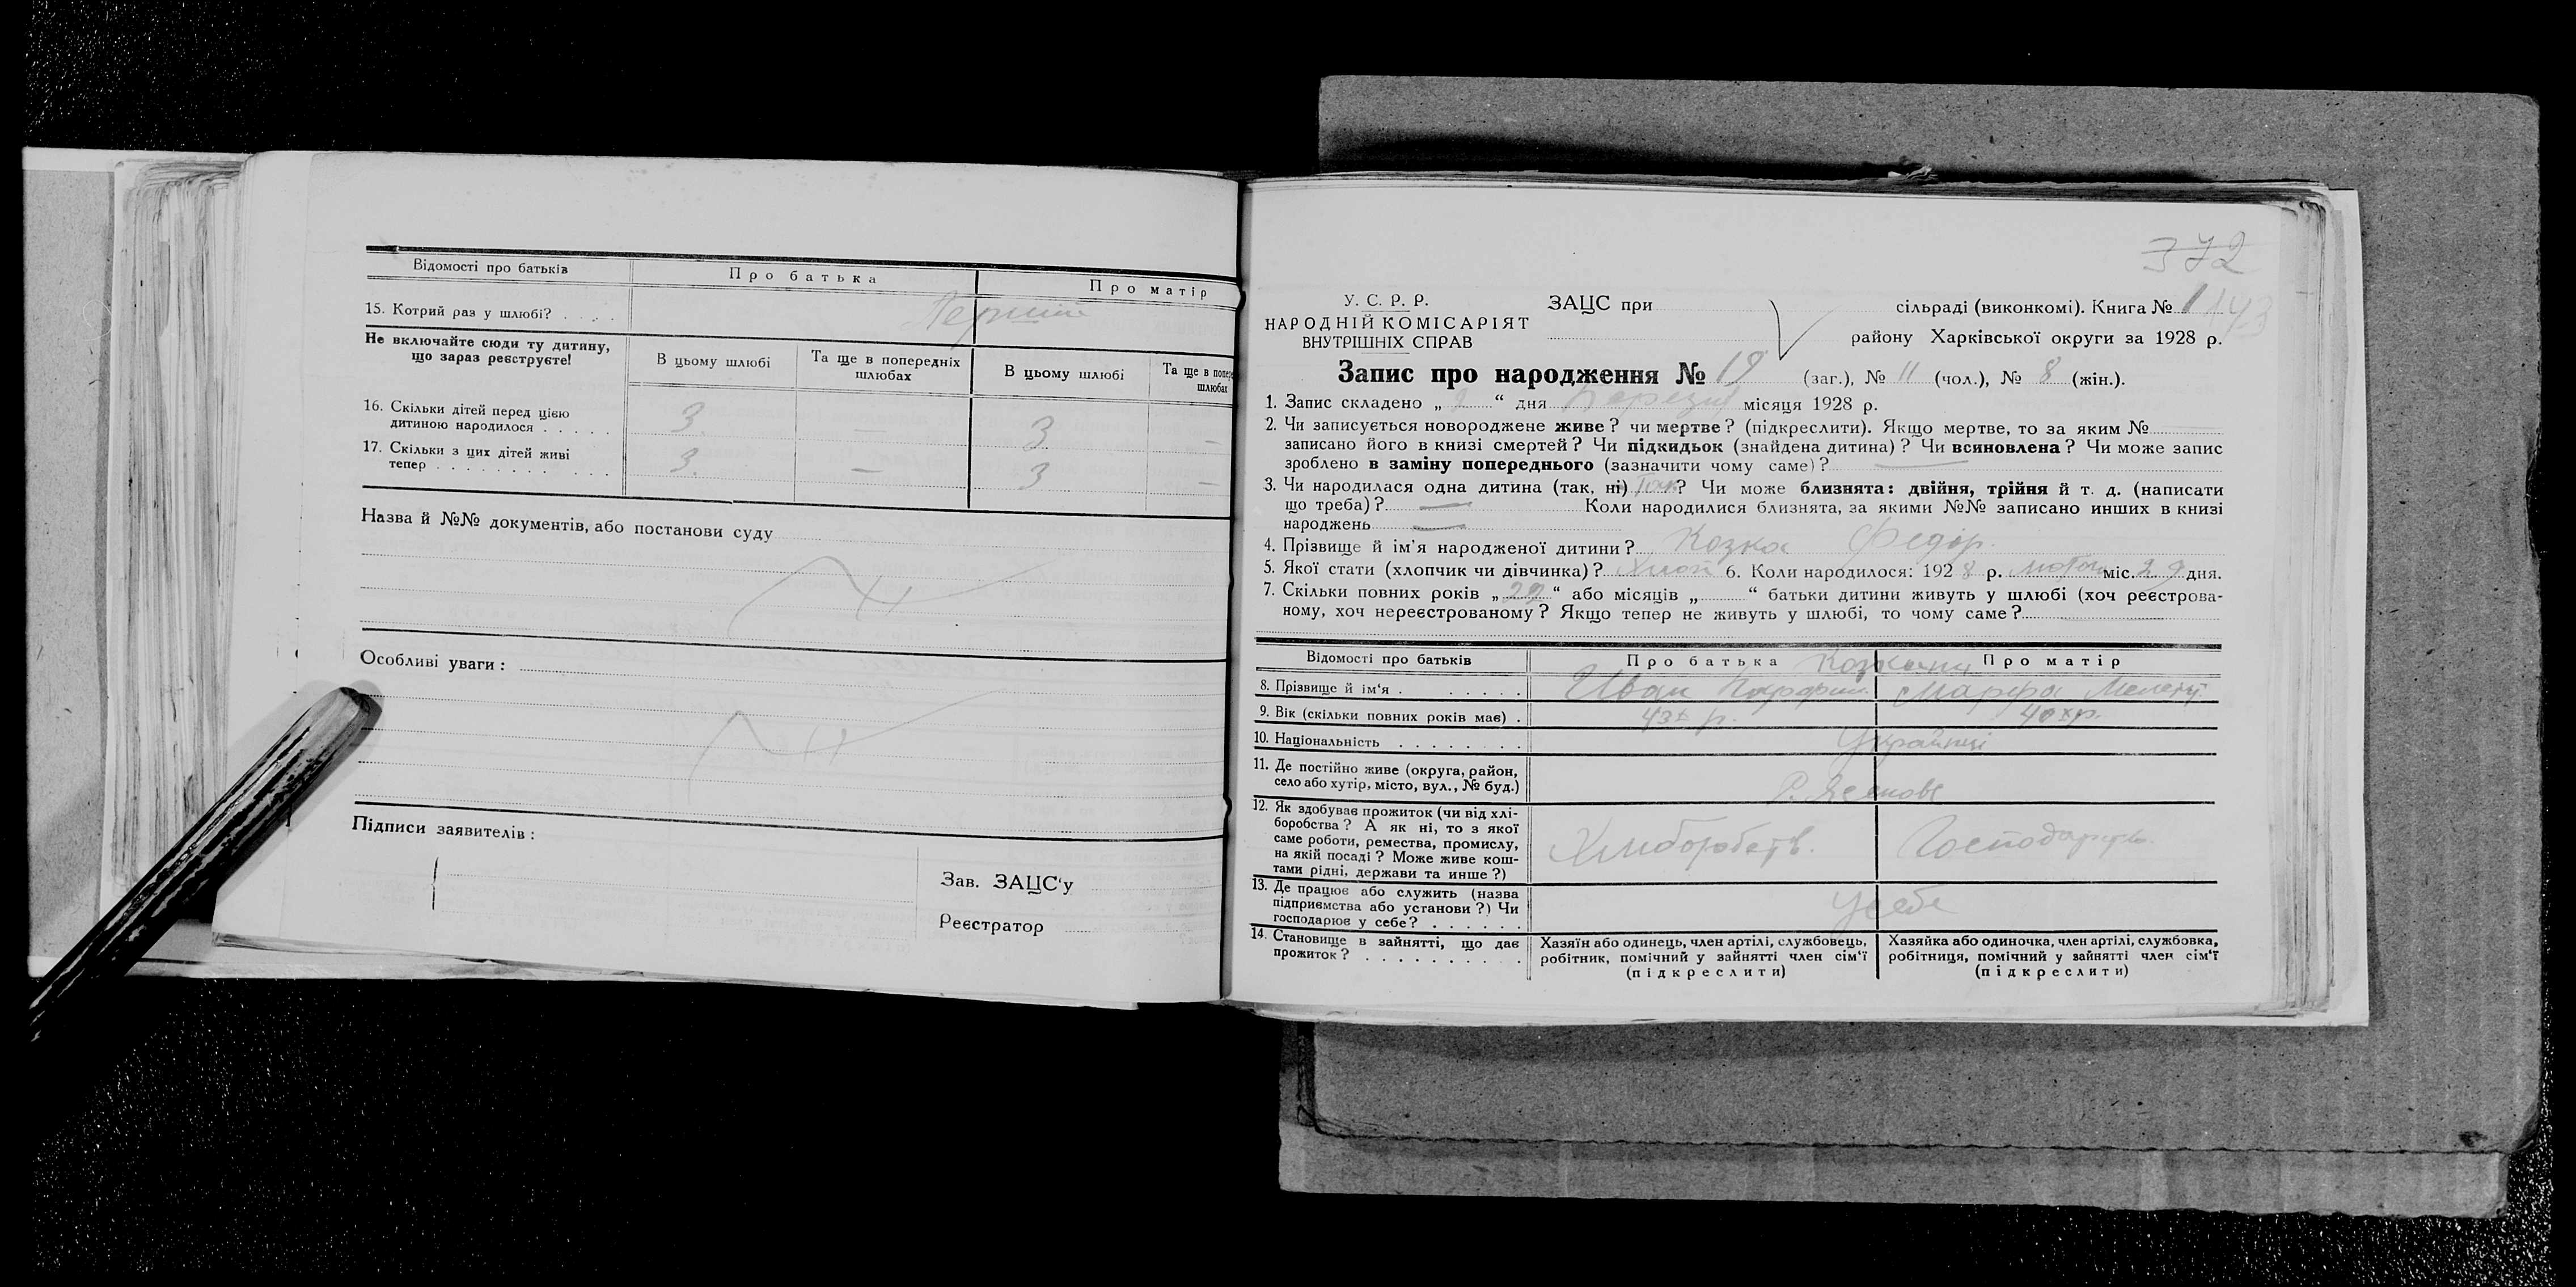 Відомості про батьків
Про батька
Про матір
15. Котрий раз у шлюбі?
Перший
Не включайте сюди ту дитину, що зараз реєструєте!
В цьому шлюбі
Та ще в попередніх шлюбах
В цьому шлюбі
Та ще в попере
шлюбах
16. Скільки дітей перед цією
дитиною народилося
3
—
3
—
17. Скільки з цих дітей живі
тепер
3.
—
3
—
Назва й №№ документів, або постанови суду
Особливі уваги:
Підписи заявителів:
Зав. ЗАЦС'у
Реєстратор
372
У. С. Р. Р.
НАРОДНІЙ КОМІСАРІЯТ
ВНУТРІШНІХ СПРАВ
ЗАЦС при
сільраді (виконкомі). Книга № 1
143
району Харківської округи за 1928 р.
Запис про народження № 19 (заг.), № 11 (чол.), № 8 (жін.).
1. Запис складено „ 2 “ дня Березня місяця 1928 р.
2. Чи записується новороджене живе? чи мертве? (підкреслити). Якщо мертве, то за яким №
записано його в книзі смертей? Чи підкидьок (знайдена дитина)? Чи всиновлена? Чи може запис
зроблено в заміну попереднього (зазначити чому саме)? —
3. Чи народилася одна дитина (так, ні) Так? Чи може близнята: двійня, трійня й т. д. (написати
що треба)? — Коли народилися близнята, за якими №№ записано инших в книзі
народжень —
4. Прізвище й ім'я народженої дитини? Козка Федір.
5. Якої стати (хлопчик чи дівчинка)? Хлоп 6. Коли народилося: 1928 р. лютого міс. 29 дня.
7. Скільки повних років „ 22 “ або місяців „ “ батьки дитини живуть у шлюбі (хоч реєстрова-
ному, хоч нереєстрованому? Якщо тепер не живуть у шлюбі, то чому саме?
Відомості про батьків
Про батька
Про матір
8. Прізвище й ім'я
Иван
Марфа
9. Вік (скільки повних років має)
43х р.
40хр.
10. Національність
Українці
11. Де постійно живе (округа, район,
село або хутір, місто, вул., № буд.)
12. Як здобуває прожиток (чи від хлі-
боробства? А як ні, то з якої
саме роботи, ремества, промислу,
на якій посаді? Може живе кош-
тами рідні, держави та инше?)
Хліборобств.
13. Де працює або служить (назва
підприємства або установи?) Чи
господарює у себе?
У себе
14. Становище в зайнятті, що дає
прожиток?
Хазяїн або одинець, член артілі, службовець,
робітник, помічний у зайнятті член сім'ї
(підкреслити)
Хазяйка або одиночка, член артілі, службовка,
робітниця, помічний у зайнятті член сім'ї
(підкреслити)